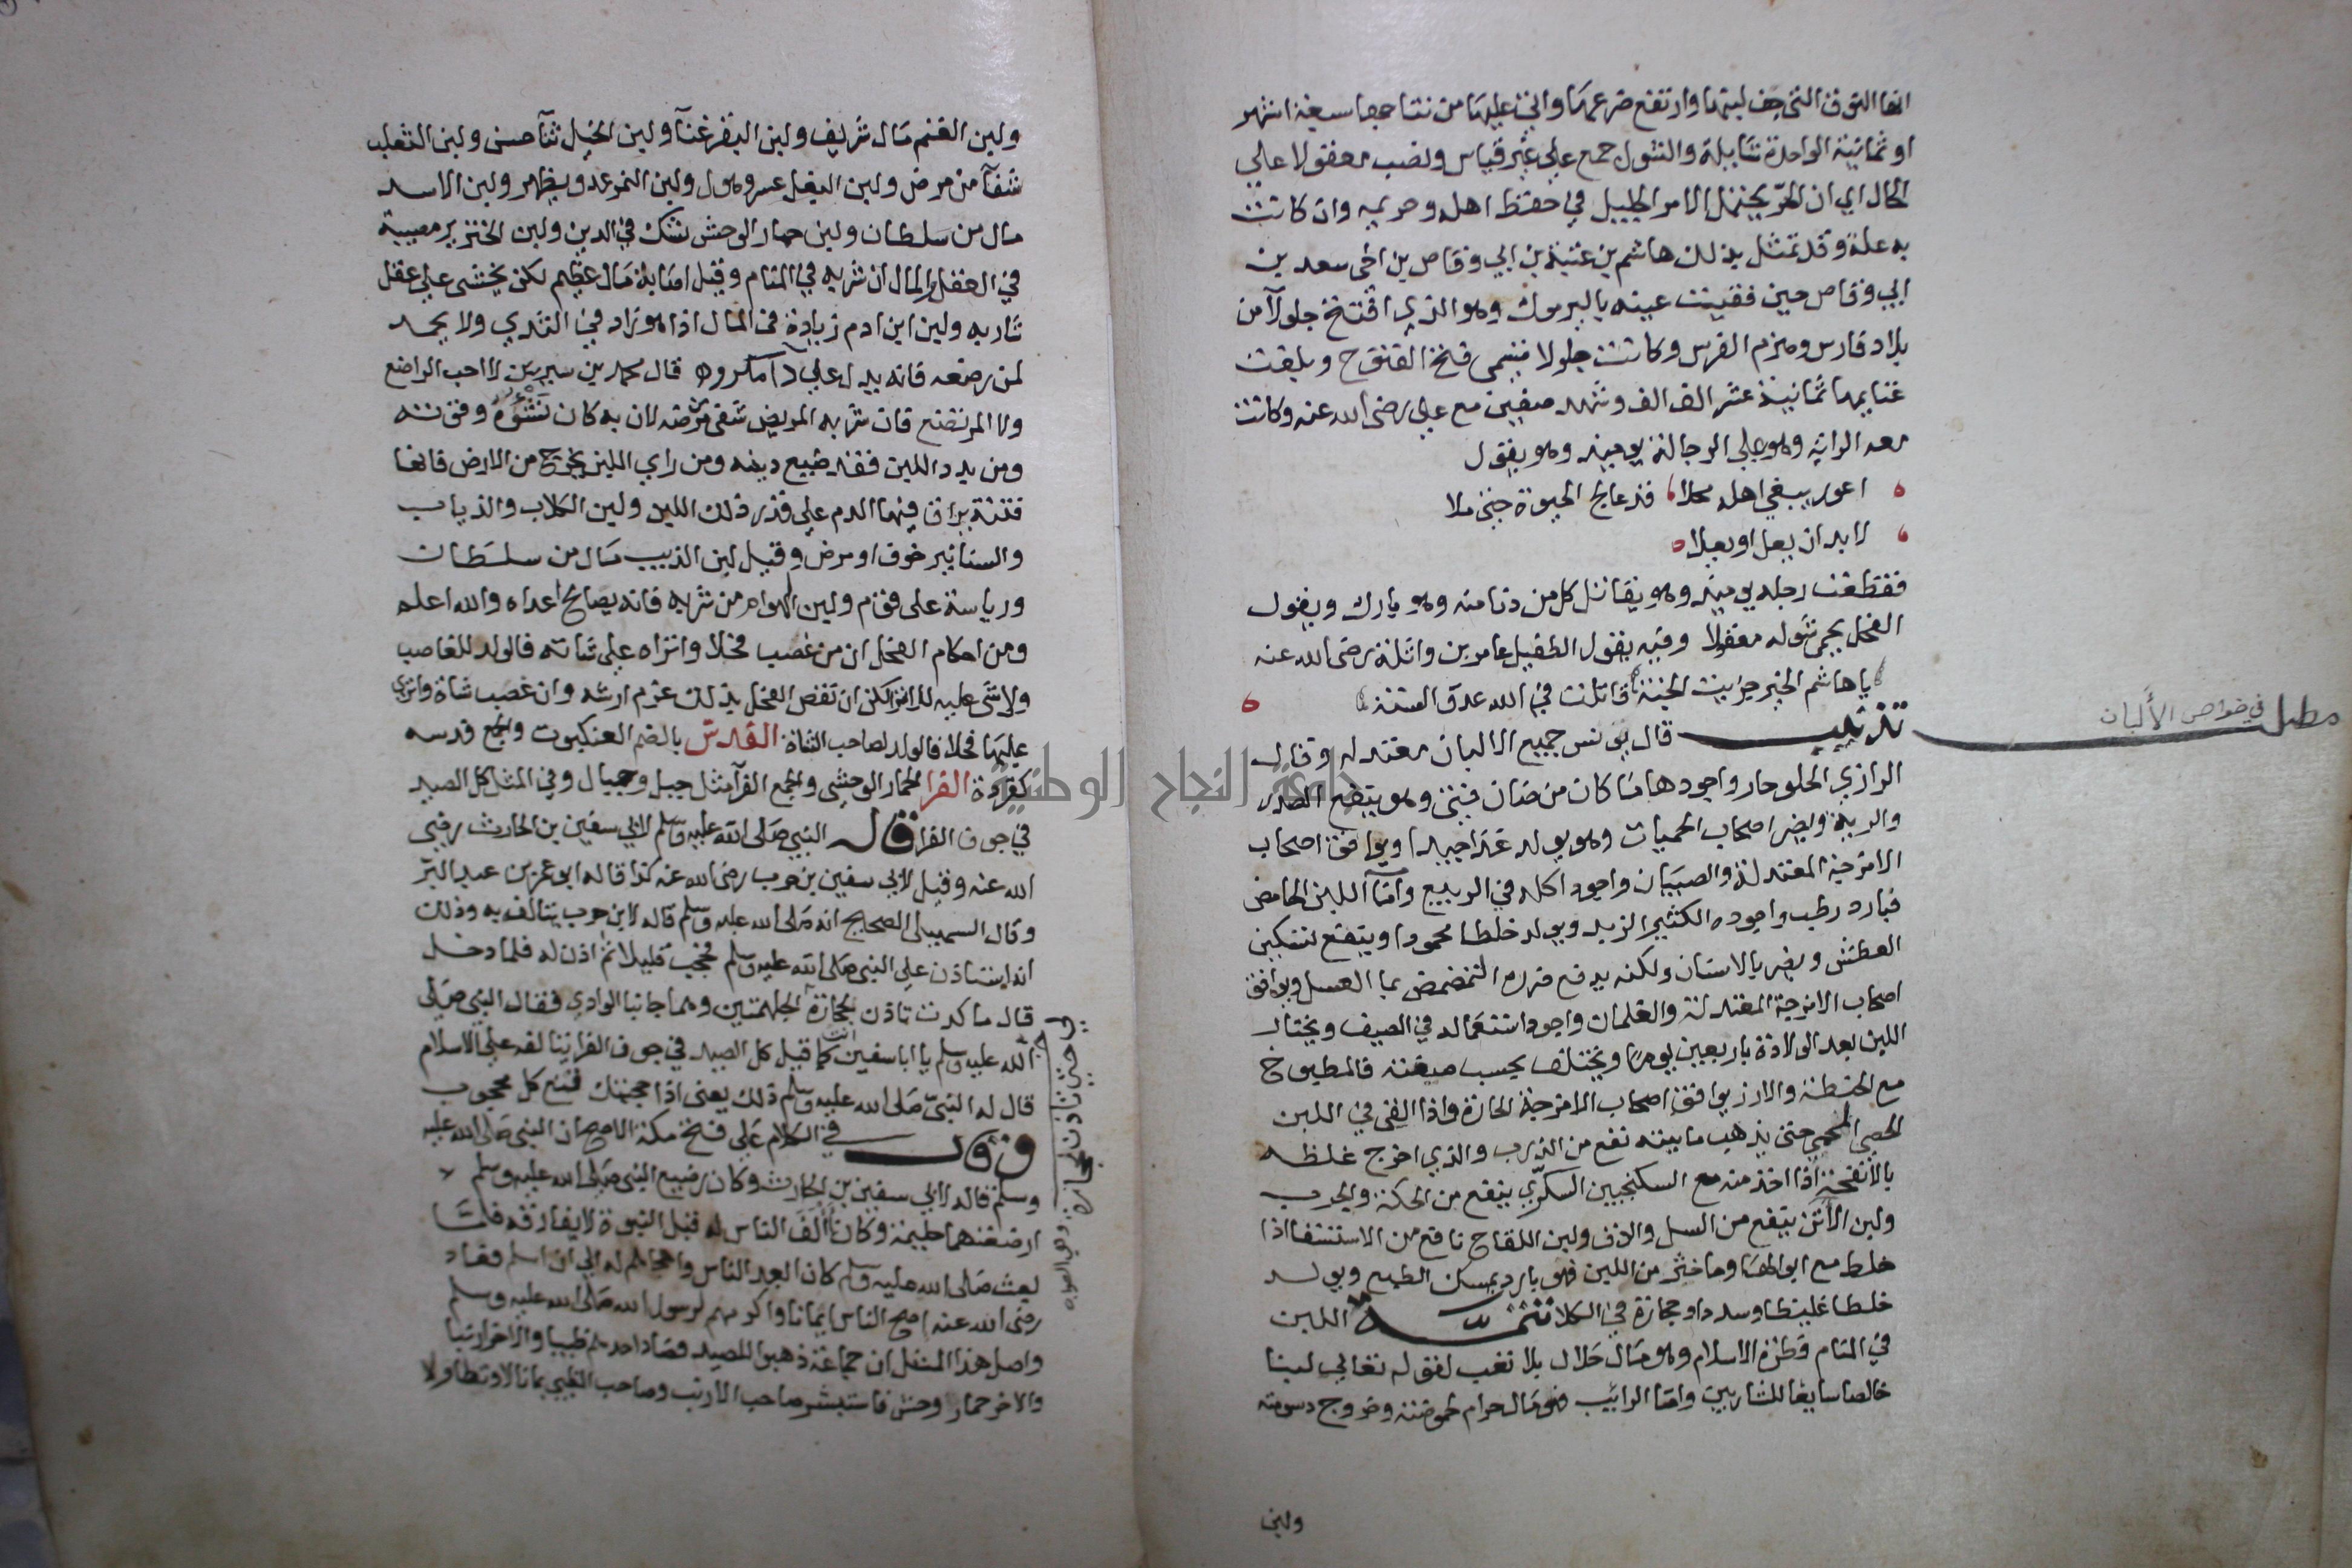 انها النوق التي جف لبنها وارتفع ضرعها واتى عليها من نتاجها سبعة اشهر
او ثمانية الواحدة شايلة والشول جمع على غير قياس ونصب معقولا على
الحال اي ان الحر يحتمل الامر الجليل في حفظ اهله وحريمه وان كانت
به علة وقد تمثل بذلك هاشم بن عتبة بن ابي وقاص بن اخى سعد بن
ابي وقاص حين فقيت عينه باليرموك وهو الذي افتتح جلولآ من
بلاد فارس وهزم الفرس وكانت جلولا تسمى فتح الفتوح وبلغت
غنايمها ثمانية عشر الف الف وشهد صفين مع علي رضى الله عنه وكانت
معه الراية وهو على الرجالة يوميذ وهو يقول
اعور يبغي اهله محلا قد عالج الحيوة حتى ملا
لا بد ان يفل او يفلا
فقطعت رجله يوميذ وهو يقاتل كل من دنا منه وهو بارك ويقول
الفحل يحمى شوله معقولا وفيه يقول الطفيل عامر بن واثلة رضى الله عنه
يا هاشم الخير جزيت الجنة قاتلت في الله عدو السنة
تذنيب قال يونس جميع الالبان معتدله وقال
مطلب في خواص الألبان
الرازي الحلو حار واجودها ما كان من ضان فتى وهو ينفع الصدر
والرية ويضر اصحاب الحميات وهو يولد غذا جيدا ويوافق اصحاب
الامزجة المعتدلة والصبيان واجود اكله في الربيع وأمآ اللبن الحامض
فبارد رطب واجوده الكثير الزبد ويولد خلطا محمودا وينفع لتسكين
العطش ويضر بالاسنان ولكنه يدفع ضرره التمضمض بما العسل ويوافق
اصحاب الامزجة المعتدلة والغلمان واجود استعماله في الصيف ويختار
اللبن بعد الولادة باربعين يوما ويختلف بحسب صيغته فالمطبوخ
مع الحنطة والارز يوافق اصحاب الامزجة الحارة واذا القي في اللبن
الحصى المحمى حتى يذهب ماييته نفع من الذرب والذي اخرج غلظه
بالانفحة اذا اخذ منه مع السكنجبين السكري ينفع من الحكة والجرب
ولبن الأتن ينفع من السل والدق ولبن اللقاح نافع من الاستسقا اذا
خلط مع ابوالها وما خثر من اللبن فهو بارد يمسك الطبع ويولد
خلطا غليظا وسددا وحجارة في الكلا تتمة اللبن
في المنام فطرة الاسلام وهو مال حلال بلا تعب لقوله تعالى لبنا
خالصا سايغا للشاربين واما الرايب فهو مال حرام لحموضته وخروج دسومته
ولبن
ولبن الغنم مال شريف ولبن البقر غنآ ولبن الخيل ثنآ حسن ولبن الثعلب
شفآ من مرض ولبن البغل عسر وهول ولبن النمر عدو يظهر ولبن الاسد
مال من سلطان ولبن حمار الوحش شك في الدين ولبن الخنزير مصيبة
في العقل والمال ان شربه في المنام وقيل اصابة مال عظيم لكن يخشى على عقل
شاربه ولبن ابن ادم زيادة فى المال اذا هو زاد في الثدي ولا يحمد
لمن رضعه فانه يدل على دآ مكروه قال محمد بن سيرين لا احب الراضع
ولا المرتضع فان شربه المريض شفى من مرضه لان به كان نشوه وقوته
ومن بدد اللبن فقد ضيع دينه ومن راي اللبن يخرج من الارض فانها
فتنة يراق فيها الدم على قدر ذلك اللبن ولبن الكلاب والذياب
والسنانير خوف او مرض وقيل لبن الذييب مال من سلطان
ورياسة على قوم ولبن الهوام من شربه فانه يصالح اعداه والله اعلم
ومن احكام الفحل ان من غصب فحلا وانزاه على شاته فالولد للغاصب
ولا شى عليه للانزا لكن ان نقص الفحل بذلك غرم ارشه وان غصب شاة وانزى
عليها فحلا فالولد لصاحب الشاة الفدس بالضم العنكبوت والجمع فدسه
كقردة الفرا الحمار الوحشى والجمع الفرآ مثل جبل وجبال وفي المثل كل الصيد
في جوف الفرا قال النبي صلى الله عليه وسلم لابي سفين بن الحارث رضى
الله عنه وقيل لابي سفين بن حرب رضى الله عنه كذا قاله ابو عمر بن عبد البر
وقال السهيلى الصحيح انه صلى الله عليه وسلم قاله لابن حرب يتالف به وذلك
انه استاذن على النبى صلى الله عليه وسلم فحجب قليلا ثم اذن له فلما دخل
قال ما كدت تاذن لحجارة الجلهمتين وهما جانبا الوادي فقال النبي صلى
الله عليه وسلم يا ابا سفين انت كما قيل كل الصيد في جوف الفرا يتالفه على الاسلام
قال له النبى صلى الله عليه وسلم ذلك يعنى اذا حجبتك قنع كل محجوب
وقال في الكلام على فتح مكة الاصح ان النبي صلى الله عليه
وسلم قاله لابي سفين بن الحارث وكان رضيع النبي صلى الله عليه وسلم
ارضعتهما حليمة وكان أألف الناس له قبل النبوة لا يفارقه فلما
بعث صلى الله عليه وسلم كان ابعد الناس واهجاهم له الى ان اسلم فعاد
رضى الله عنه اصح الناس ايمانا واكرمهم لرسول الله صلى الله عليه وسلم
واصل هذا المثل ان جماعة ذهبوا للصيد فصاد احدهم ظبيا والاخر ارنبا
والاخر حمار وحش فاستبشر صاحب الارنب وصاحب الظبي بما نالا وتطاولا
حتى تاذن لحجارة
جامعة النجاح الوطنية